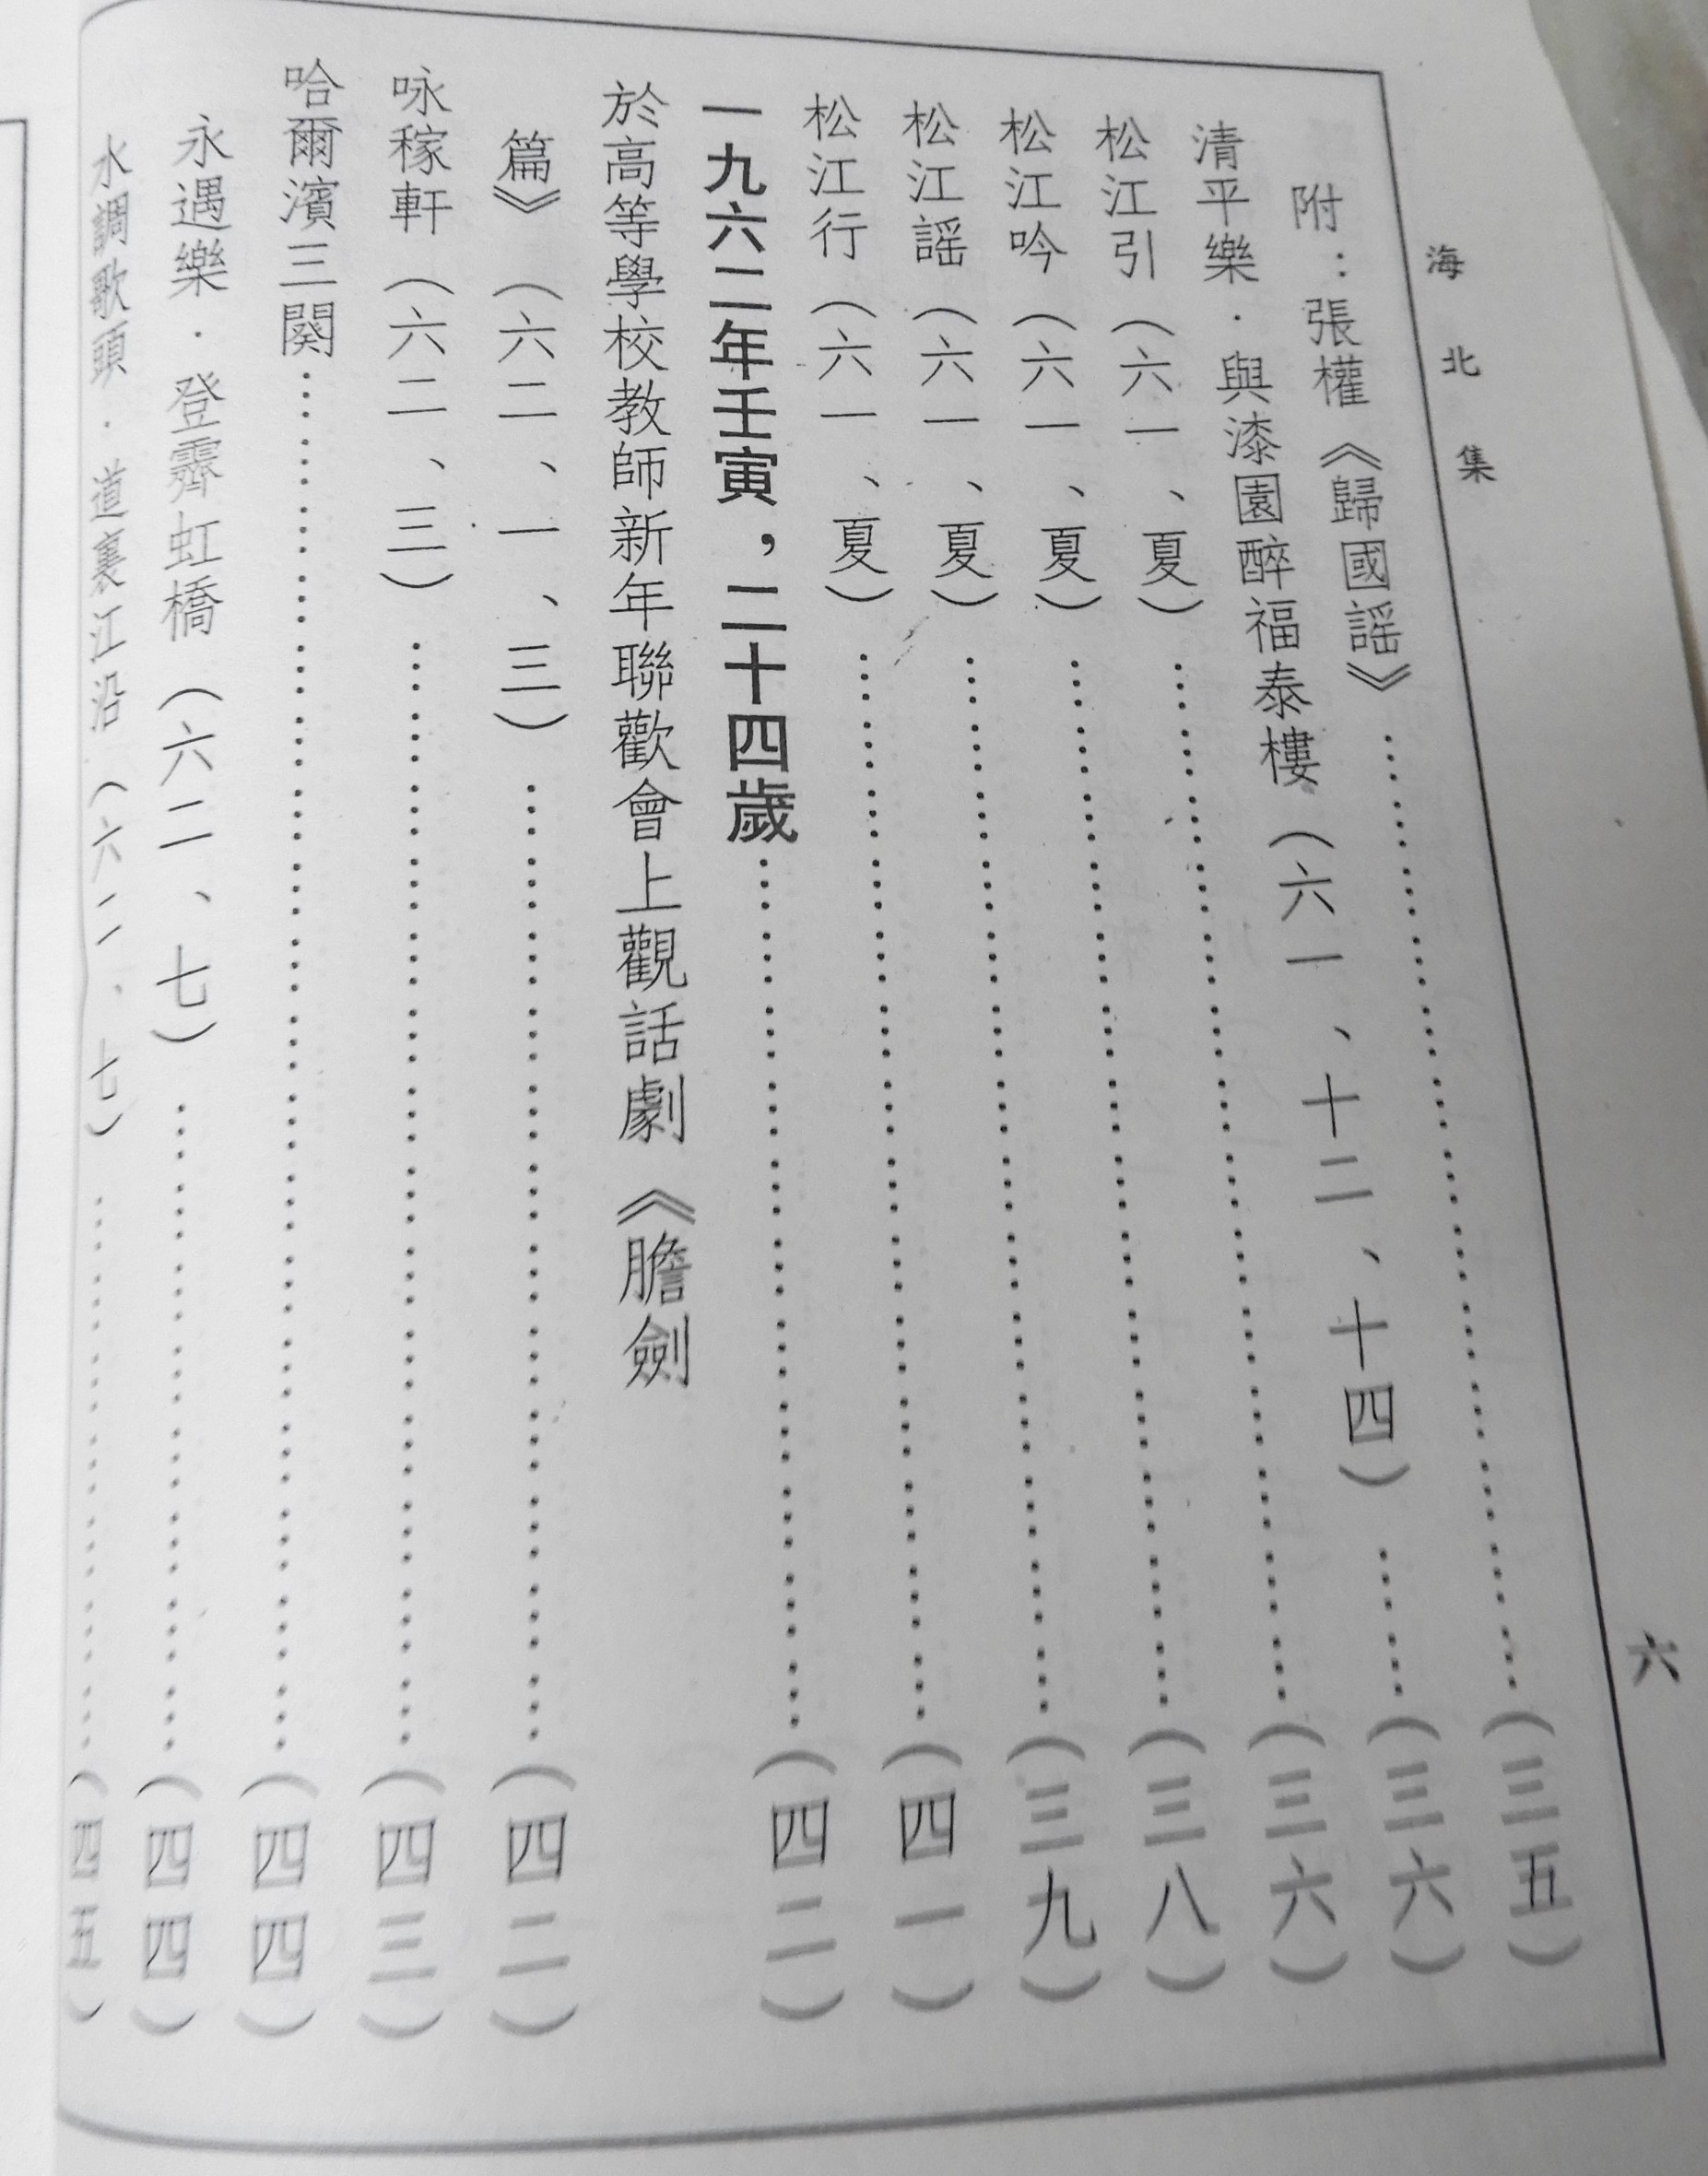 海北集
六
附：張權《歸國謡》……（三五）
清平樂·與漆園醉福泰樓（六一、十二、十四）……（三六）
松江引（六一、夏）……（三六）
松江吟（六一、夏）……（三八）
松江謡（六一、夏）……（三九）
松江行（六一、夏）……（四一）
一九六二年壬寅，二十四歲……（四二）
於高等學校教師新年聯歡會上觀話劇《膽劍
篇》（六二、一、三）……（四二）
咏稼軒（六二、三）……（四三）
哈爾濱三闋……（四四）
永遇樂·登霽虹橋（六二、七）……（四四）
水調歌頭·道裏江沿（六二、七）……（四五）